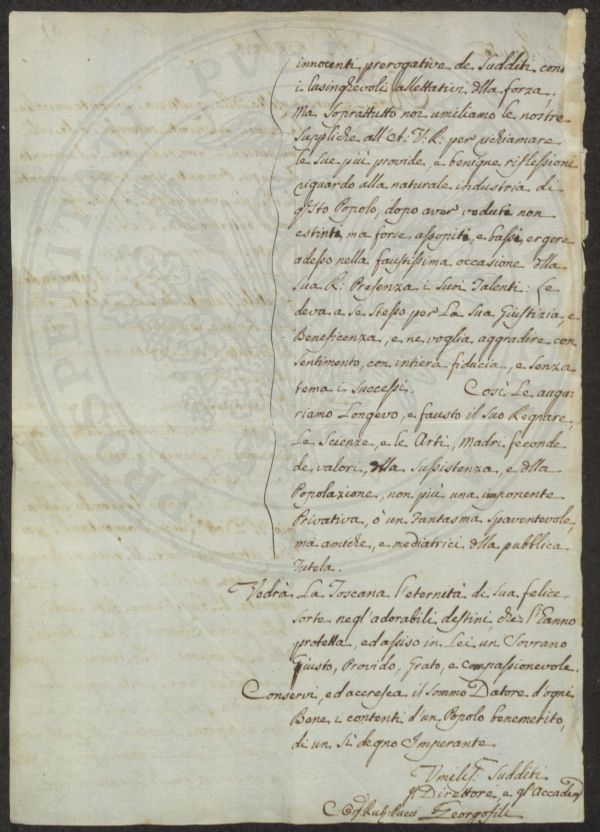 innocenti prerogative de Sudditi con
i lusinghevoli allettativi dlla forza,
Ma soprattutto noi umiliamo le nostre
suppliche all'A: V. R: per richiamare
le sue più provide, e benigne riflessioni
riguardo alla naturale industria di
qsto Popolo, dopo aver veduti non
estinti, ma forse assopiti, e bassi, ergere
adesso nella faustissima occasione dlla
sua R: Presenza i suoi Talenti: Le
deva a se stesso per La sua Giustizia, e
Beneficenza, e ne voglia aggradire con
sentimento, con intiera fiducia, e senza
tema i successi. Così Le augu:
riamo Longevo, e fausto il suo Regnare,
Le Scienze, e le Arti, Madri feconde
de valori, dlla sussistenza, e dlla
Popolazione, non più una imponente
Privativa, ò un Fantasma Spaventevole,
ma amiche, e mediatrici dlla pubblica
Tutela.
Vedrà La Toscana l'eternità di sua felice
sorte negl'adorabili destini che l'hanno
protetta, ed assiso in Lei un Sovrano
Giusto, Provido, Grato, e compassionevole.
Conservi, ed accresca il sommo Datore d'ogni
Bene i contenti d'un Popolo benemerito,
di un sì degno Imperante
Umilis. Sudditi
Direttore, e gl'Accadi
Pucci Georgofili
PROSPERITATI PUBLICAE